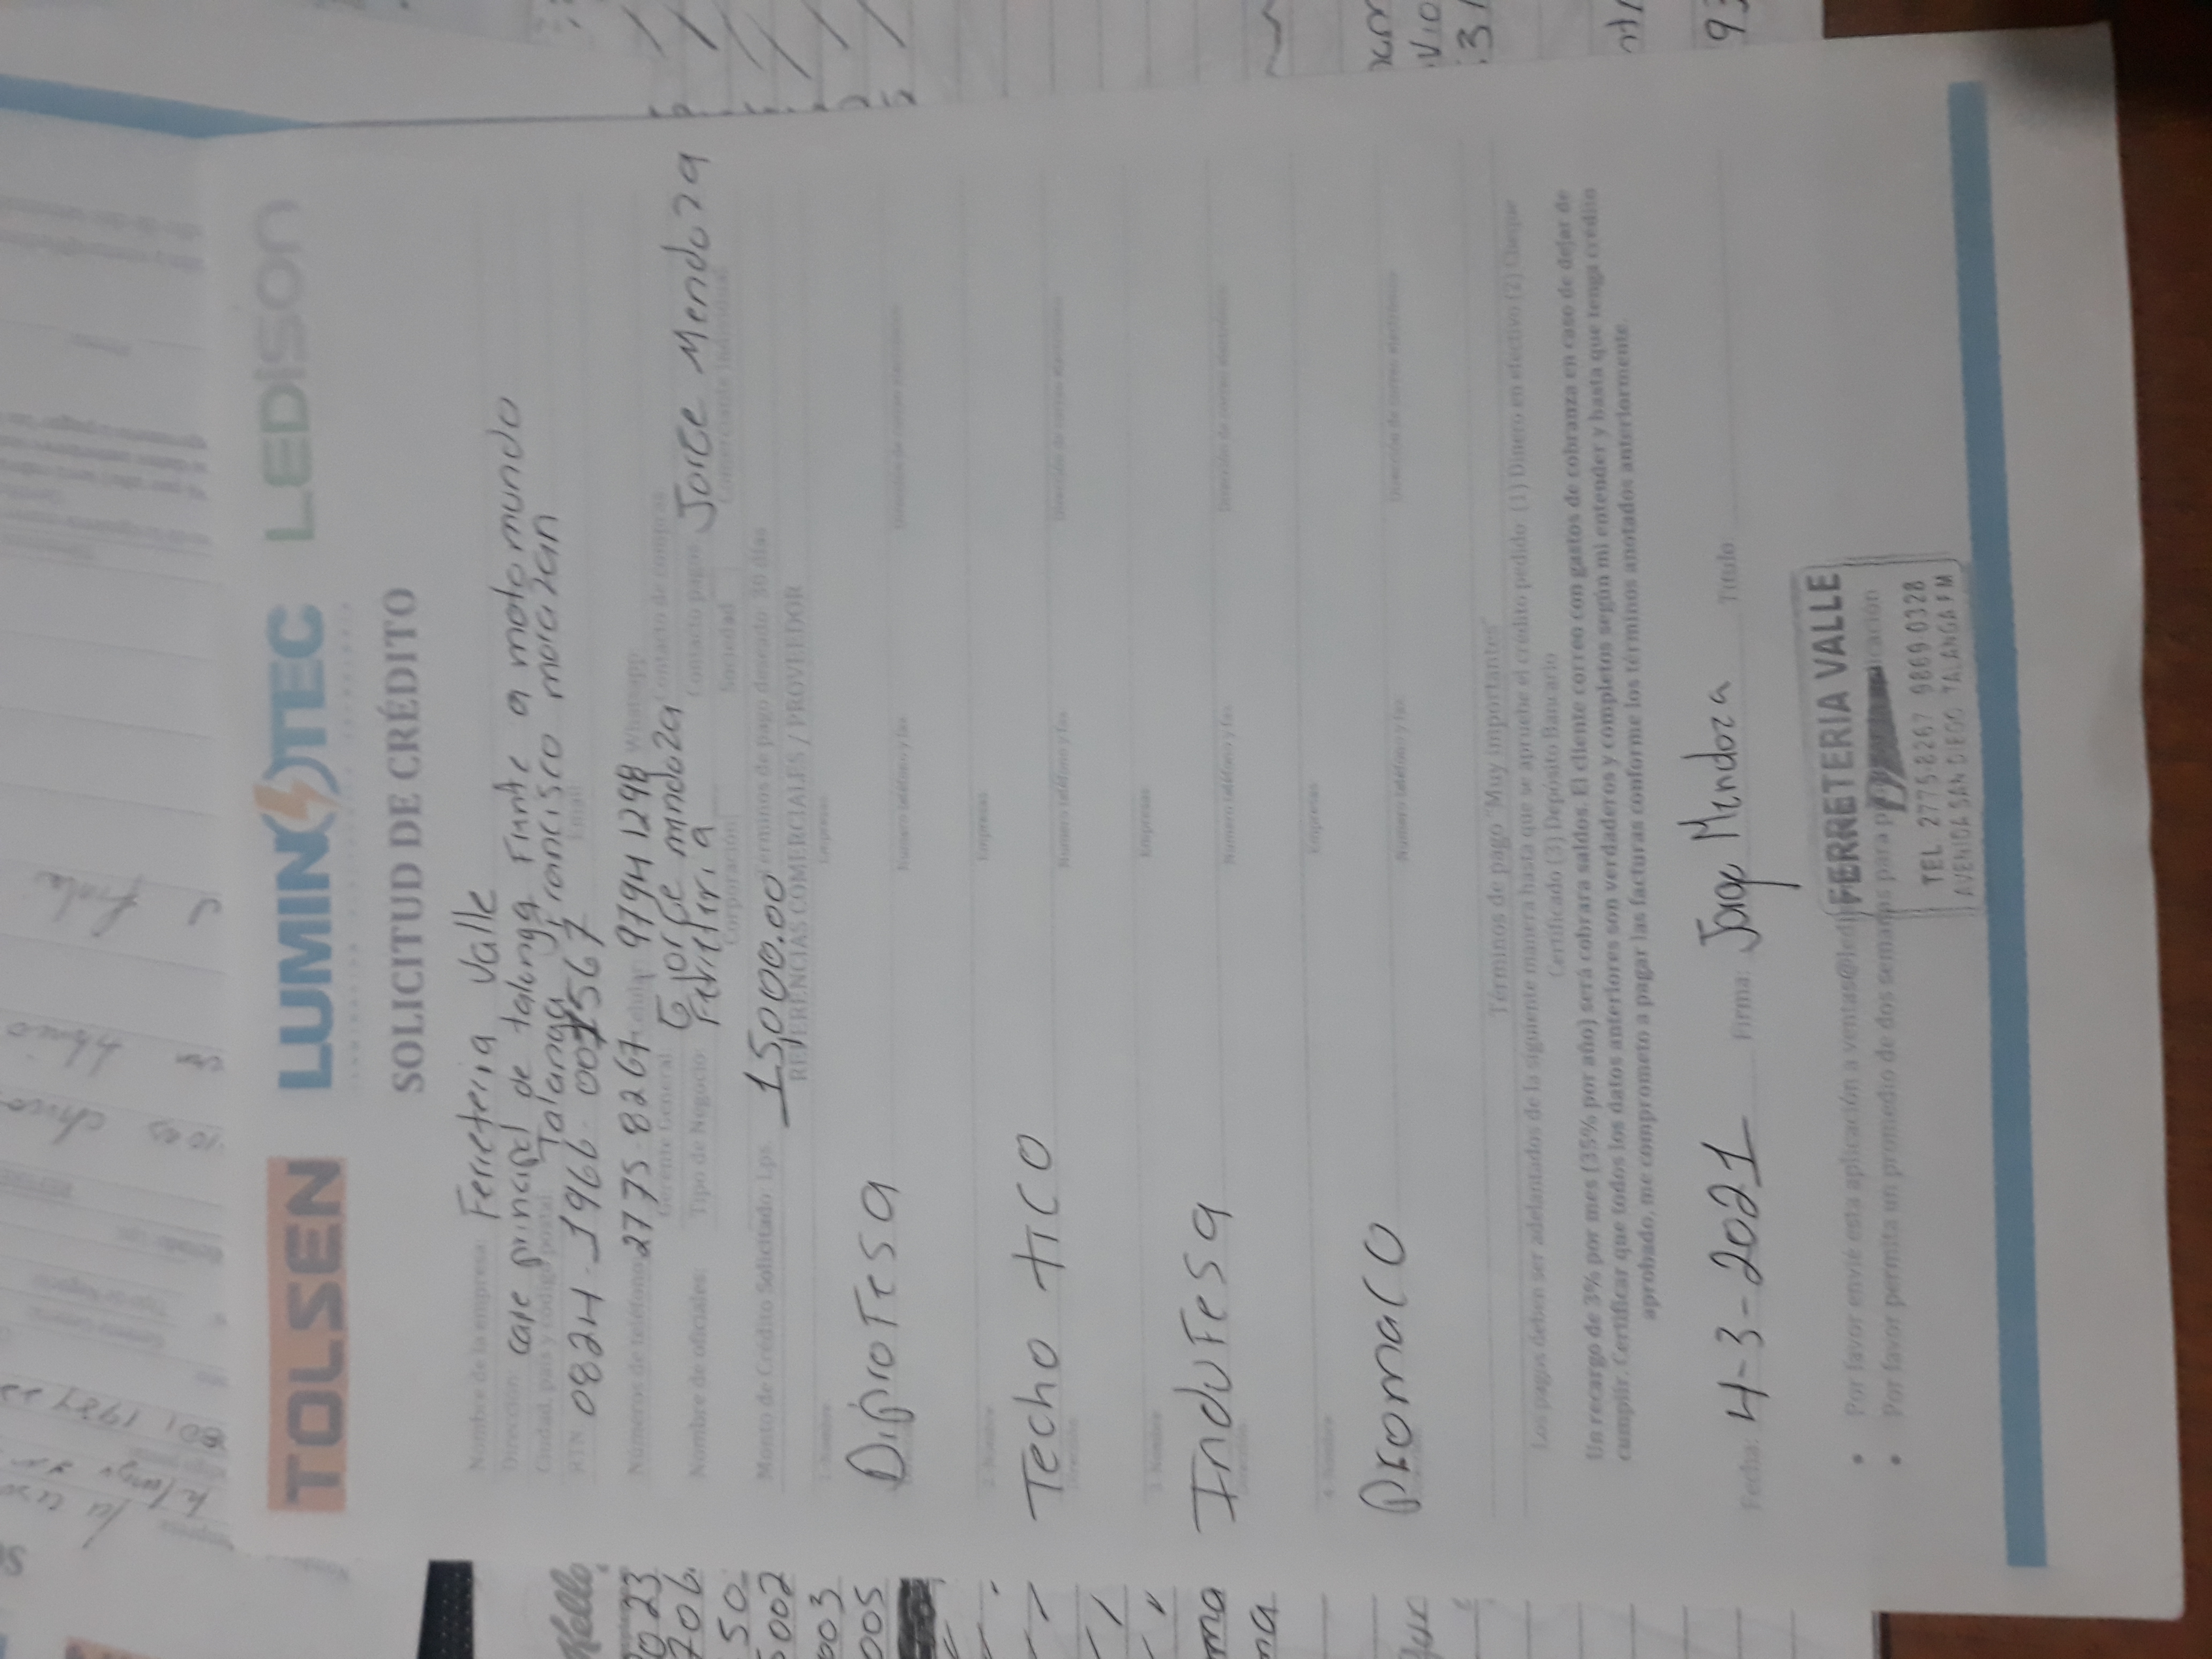 TOLSEN LUMINOTEC LEDISON
SOLICITUD DE CRÉDITO
Nombre de la empresa: Ferreteria Valle
Dirección: cape principal de talanga Frante a motomundo
Ciudad, país y código postal: Talanga Francisco morazan
RTN: 0824-1966-001567 Email
Números de teléfono: 2775-8267 Celular: 97941298 Whatsapp:
Gerente General: Jorge mndoza Contacto de compras:
Nombre de oficiales: Tipo de Negocio: Ferreteria Contacto pagos: Jorge Mendoza
Corporación Sociedad Comerciante Individual
Monto de Crédito Solicitado: Lps. 15,000.00 Términos de pago deseado: 30 días
REFERENCIAS COMERCIALES / PROVEEDOR
1. Nombre Empresas
Diprofesa
Dirección Numero teléfono y fax Dirección de correo electrónico
2. Nombre Empresas
Techo tico
Dirección Numero teléfono y fax Dirección de correo electrónico
3. Nombre Empresas
Indufesa
Dirección Numero teléfono y fax Dirección de correo electrónico
4. Nombre Empresas
Promaco
Dirección Numero teléfono y fax Dirección de correo electrónico
Términos de pago "Muy importantes"
Los pagos deben ser adelantados de la siguiente manera hasta que se apruebe el crédito pedido: (1) Dinero en efectivo (2) Cheque
Certificado (3) Depósito Bancario
Un recargo de 3% por mes (35% por año) será cobrara saldos. El cliente correo con gastos de cobranza en caso de dejar de
cumplir. Certificar que todos los datos anteriores son verdaderos y completos según mi entender y hasta que tenga crédito
aprobado, me comprometo a pagar las facturas conforme los términos anotados anteriormente.
Fecha: 4-3-2021 Firma: Jorge Mendoza Titulo:
Por favor envié esta aplicación a
Por favor permita un promedio de dos semanas para
FERRETERIA VALLE
TEL 2775-8267 9869-0328
AVENIDA SAN DIEGO TALANGA F M